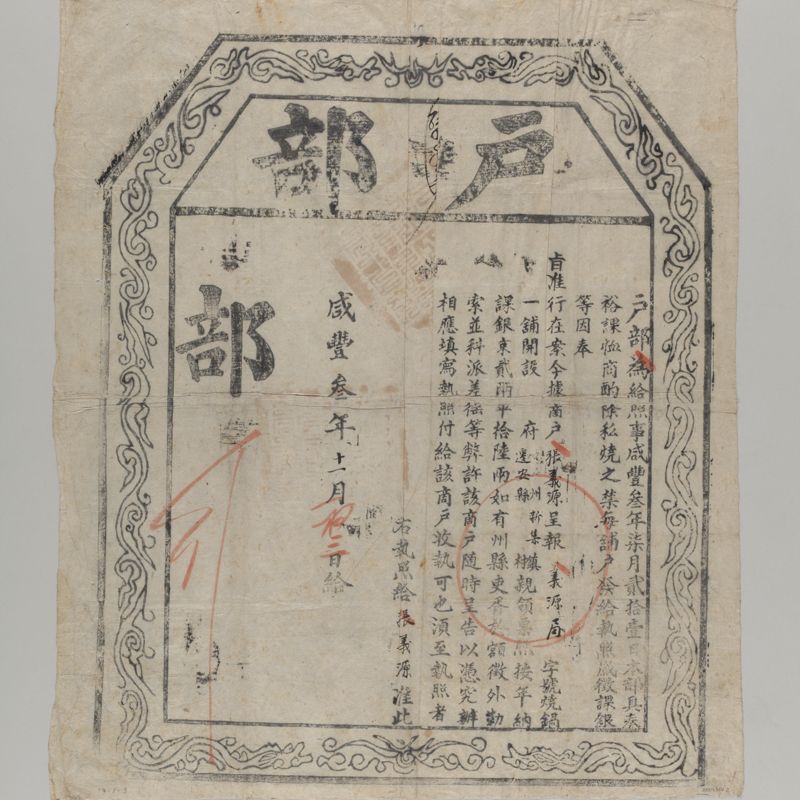 戶部
戶部為給照事咸豐叁年柒月貳拾壹日本部具奏
裕課恤商酌除私燒之禁每舖戶發給執照歲徵課銀
等因奉
旨准行在案今據商戶張義源呈報 義源局 字號燒鍋
一舖開設 府 州遷安縣 新集鎮村親領票照按年納
課銀東貳兩平拾陸兩如有州縣吏胥於額徵外勒
索並科派差徭等弊許該商戶隨時呈告以憑究辦
相應填寫執照付給該商戶收執可也須至執照者
右執照給張義源准此
咸豐叁年十一月 初二日給
部